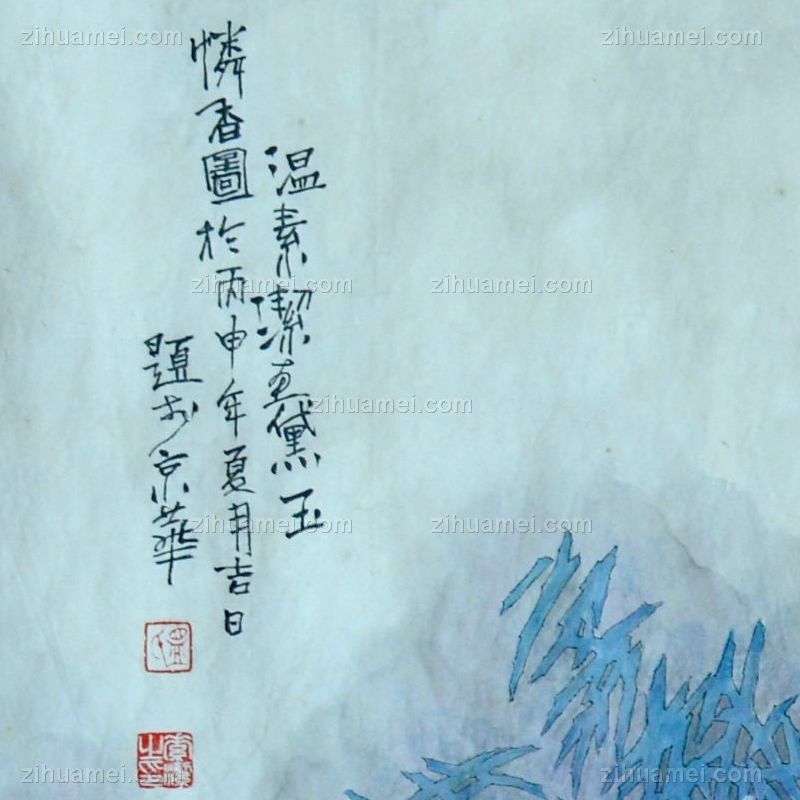 温素潔画黛玉
憐香圖於丙申年夏月吉日
題於京華
zihuamei.com zihuamei.com
zihuamei.com zihuamei.com
zihuamei.com
zihuamei.com zihuamei.com
zihuamei.com zihuamei.com